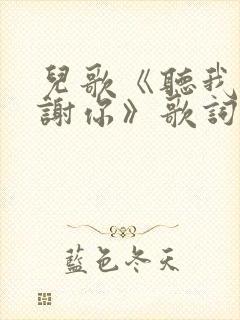 兒歌《聽我
謝你》歌詞
藍色冬天